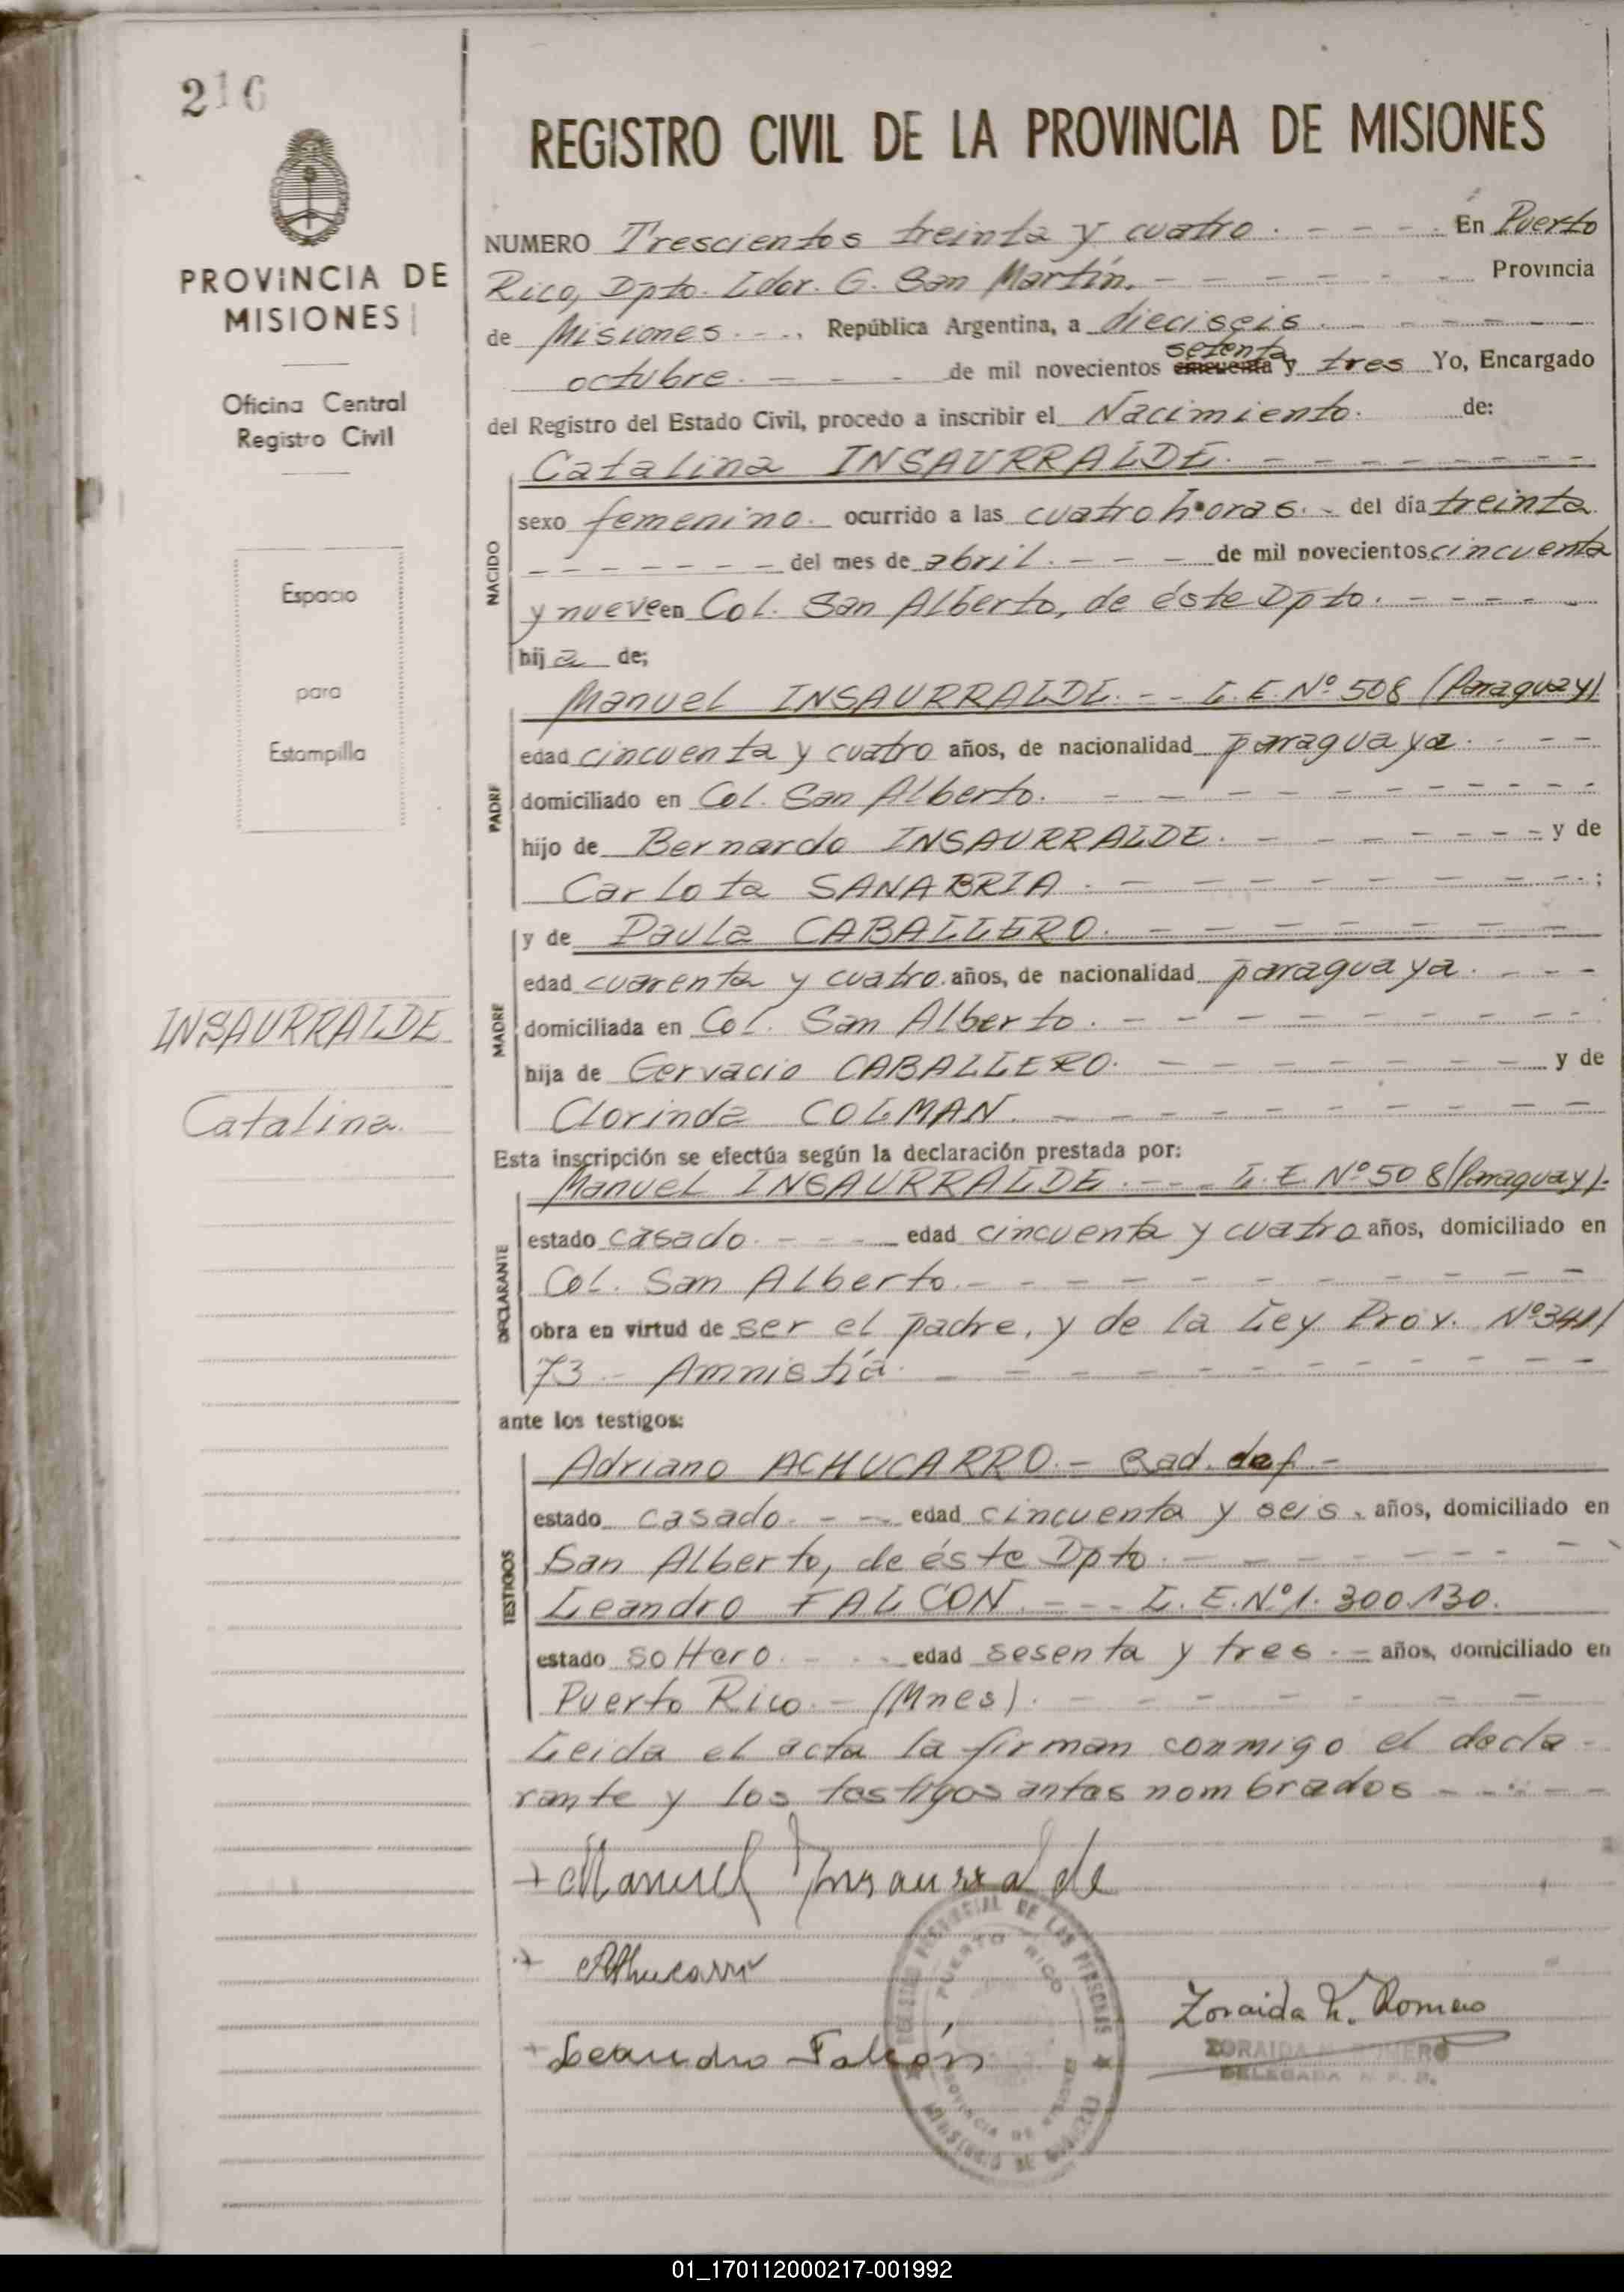 216
PROVINCIA DE
MISIONES
Oficina Central
Registro Civil
Espacio
para
Estampilla
INSAURRALDE
Catalina.
REGISTRO CIVIL DE LA PROVINCIA DE MISIONES
NUMERO Trescientos treinta y cuatro. - - - . En Puerto
Rico, Dpto. Ldor. G. San Martín. - - - - - - Provincia
de Misiones. - - . República Argentina, a dieciséis. - - - - - -
octubre. - - - de mil novecientos setenta cincuenta y tres Yo, Encargado
del Registro del Estado Civil, procedo a inscribir el Nacimiento. de:
Catalina INSAURRALDE. - - - - - - - -
NACIDO
sexo femenino. ocurrido a las cuatro horas. - del día treinta
- - - - - - - del mes de abril. - - - de mil novecientos cincuenta
y nueve en Col. San Alberto, de éste Dpto. - - - - -
hij a de;
Manuel INSAURRALDE. - - L.E. Nº 508 (Paraguay)
PADRE
edad cincuenta y cuatro años, de nacionalidad paraguaya. - - -
domiciliado en Col. San Alberto. - - - - - - - - -
hijo de Bernardo INSAURRALDE. - - - - - - - y de
Carlota SANABRIA. - - - - - - - - - ;
y de Paula CABALLERO. - - - - - - - -
MADRE
edad cuarenta y cuatro. años, de nacionalidad paraguaya. - - -
domiciliada en Col. San Alberto. - - - - - - - - -
hija de Gervacio CABALLERO. - - - - - - - y de
Clorinda COLMAN. - - - - - - - - - -
Esta inscripción se efectúa según la declaración prestada por:
Manuel INSAURRALDE. - - - L.E. Nº 508 (Paraguay).
DECLARANTE
estado casado. - - - edad cincuenta y cuatro años, domiciliado en
Col. San Alberto. - - - - - - - - - - -
obra en virtud de ser el padre, y de la Ley Prov. Nº 341/
73 - Amnistía. - - - - - - - - - - -
ante los testigos:
Adriano ACHUCARRO. - Rad. def. -
TESTIGOS
estado casado. - - edad cincuenta y seis. años, domiciliado en
San Alberto, de éste Dpto. - - - - - - - -
Leandro FALCON. - - - L.E. Nº 1.300.130.
estado soltero. - - - edad sesenta y tres. - años, domiciliado en
Puerto Rico. - (Mnes). - - - - - - -
Leida el acta la firman conmigo el decla-
rante y los testigos antes nombrados - - - - -
+ Manuel Insaurralde
+ AAhucarro
+ Leandro Falcón
Zoraida N. Romero
ZORAIDA N. ROMERO
DELEGADA
REGISTRO PROVINCIAL DE LAS PERSONAS
PUERTO RICO
PROVINCIA DE MISIONES
MINISTERIO DE GOBIERNO
01_170112000217-001992